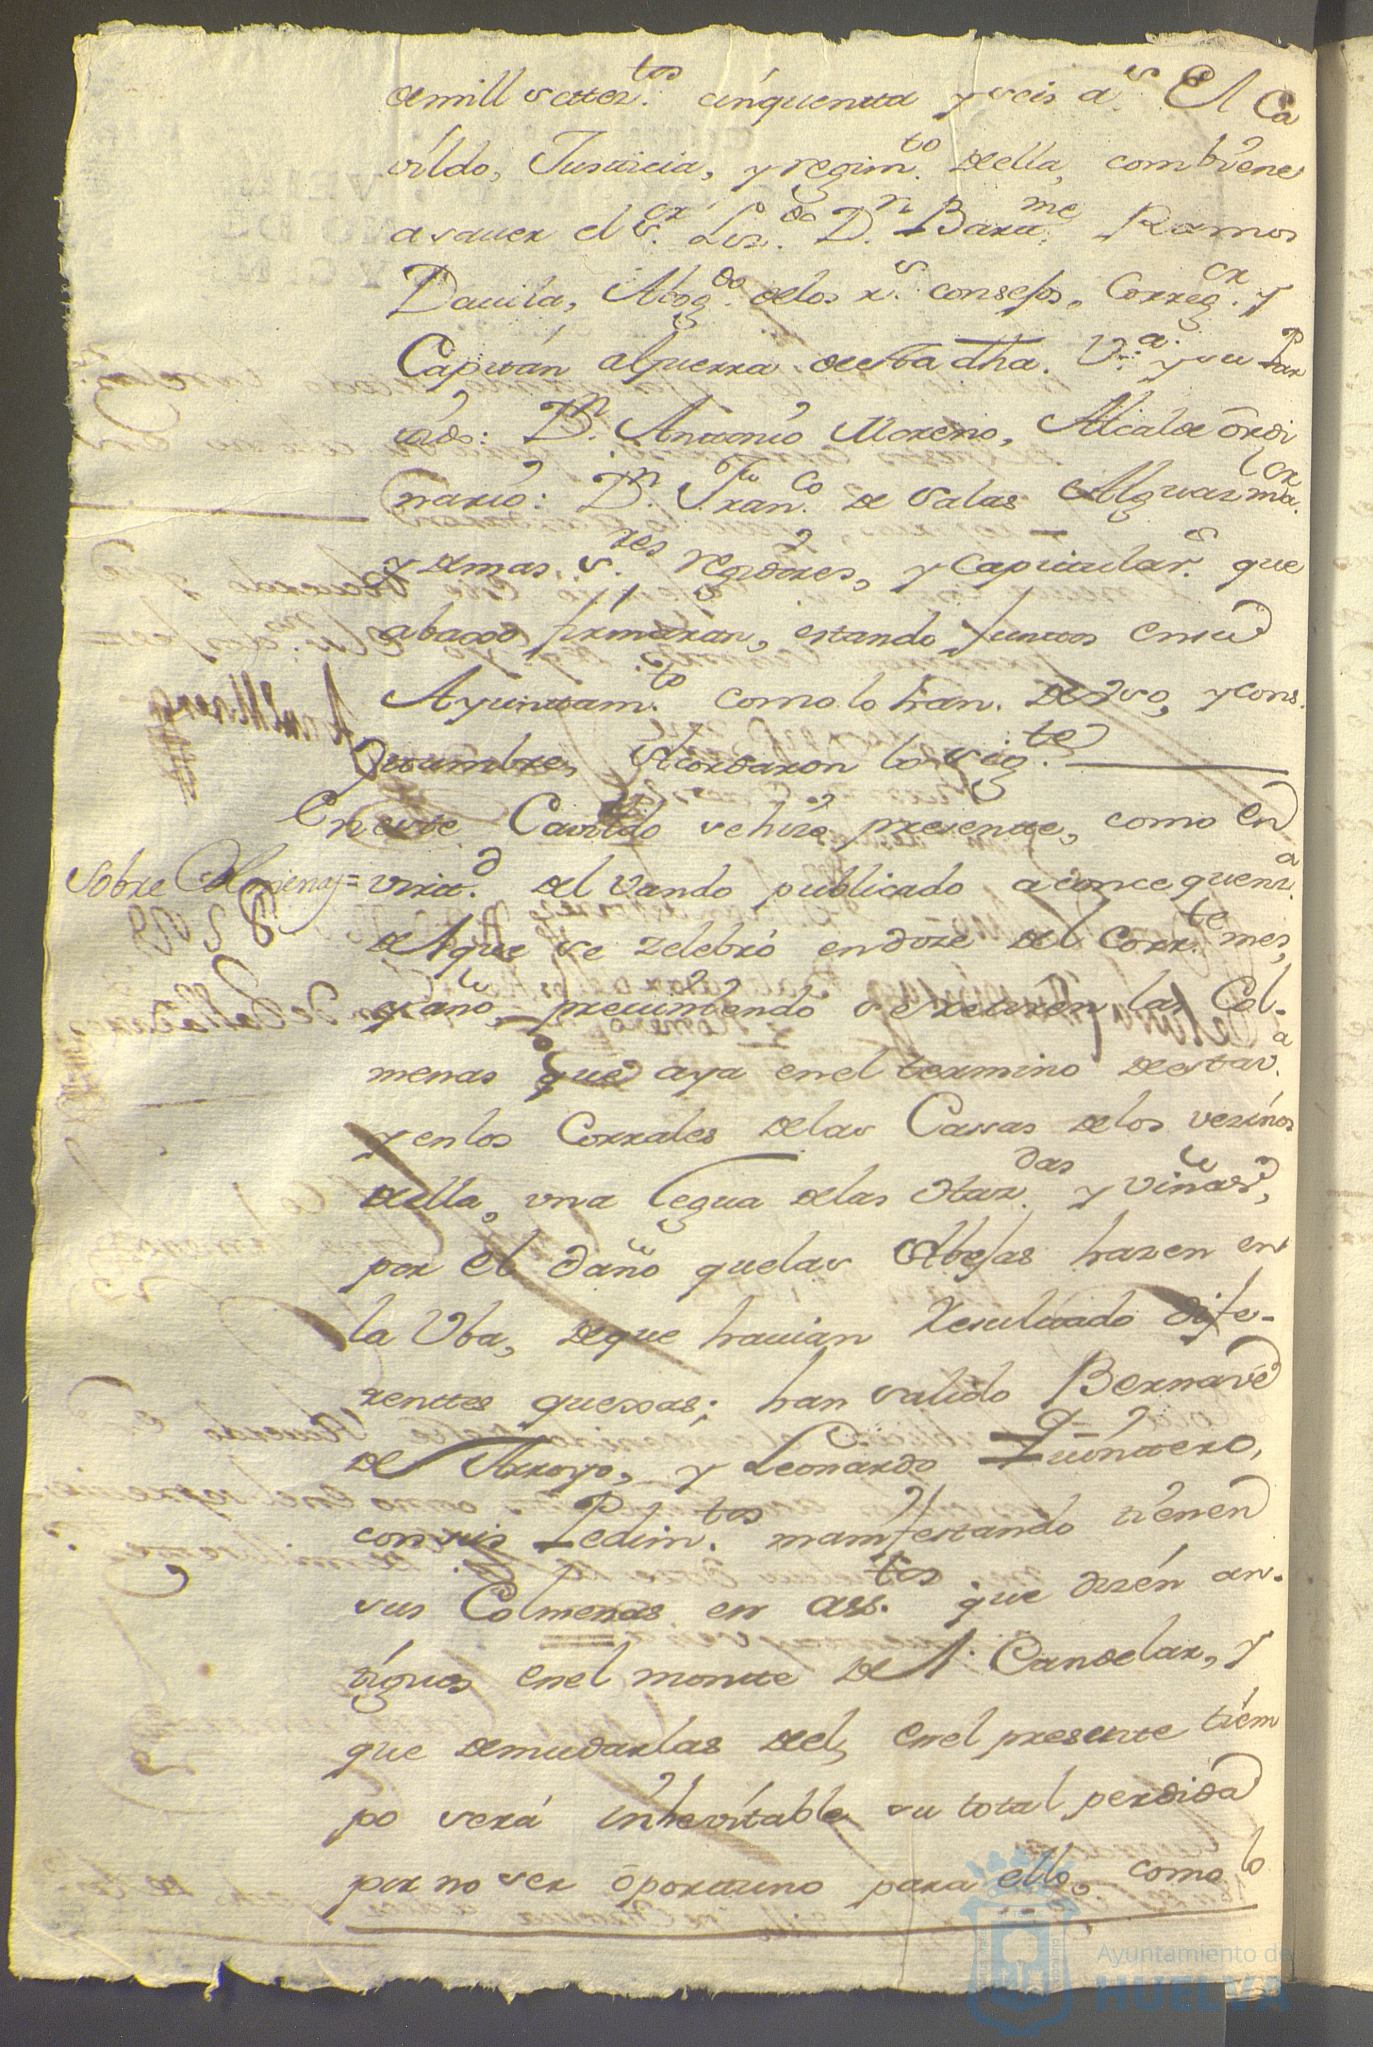 de mill settez.tos cinquentta y seis a.s El Ca
vildo, Justticia, y regim.to de ella, combiene
a saver el s.or Liz.do D.n Barm.me Ramos
Davila, Abog.do de los r.s consejos, Correg.or y
Capittán a guerra de esta dha. V.a y su Par
tido: D.n Antonio Moreno, Alcalde ordi
nario: D.n Fran.co de Salas Alguazil ma.or
y demas s.res regidores, y capitular.s que
abaxo firmaran, estando juntos en su
Ayuntam.to como lo han de uso, y cos
tumbre, Acordaron lo sig.te
En este Cavildo se hizo presente, como en
Sobre Colmenas = virtt.d del vando publicado a consequenz.a
del que se zelebró en doze del corr.te mes,
y año, previniendo se retiren las Col-
menas que aya en el termino de esta v.a
y en los Corrales de las Casas de los vezinos
de ella, una legua de las otar.das y viñas,
por el daño que las Abejas hazen en
la Uba, de que havian Resultado dife-
rentes quexas; han salido Bernavé
de Arroyo, y Leonardo Quinttero,
con sus Pedim.tos manifestando tienen
sus Colmenas en ass.tos que dizén an-
tiguos en el montte de Candelar, y
que de mudarlas de el, en el presente tiem
po será inhevitable su total perdida
por no ser oportuno para ello, como lo
Ayuntamiento de
HUELVA